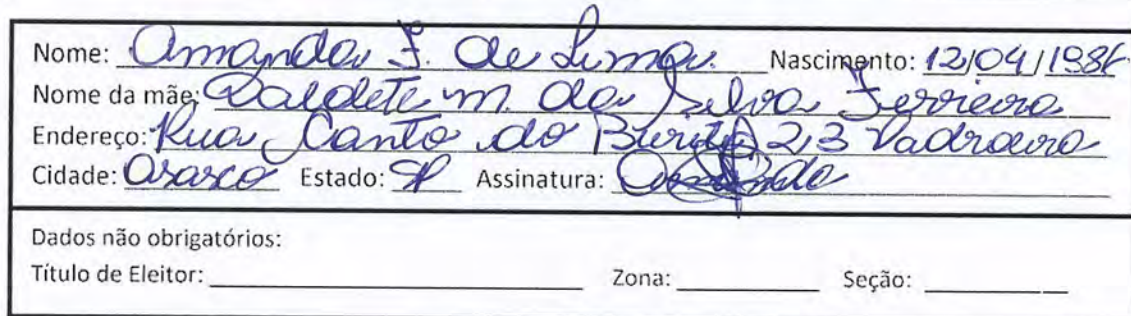 Nome: Amanda F. de Lima Nascimento: 12/04/1986
Nome da mãe: Valdete M. da Silva Ferreira
Endereço: Rua Canto do Buriti 213 Padroeira
Cidade: Osasco Estado: SP Assinatura: Amanda
Dados não obrigatórios:
Título de Eleitor: Zona: Seção: